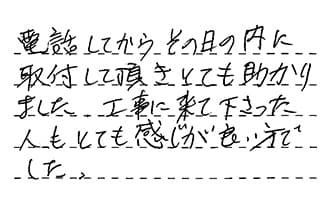 電話してからその日の内に
取付して頂きとても助かり
ました。工事に来て下さった
人もとても感じが良い方で
した。